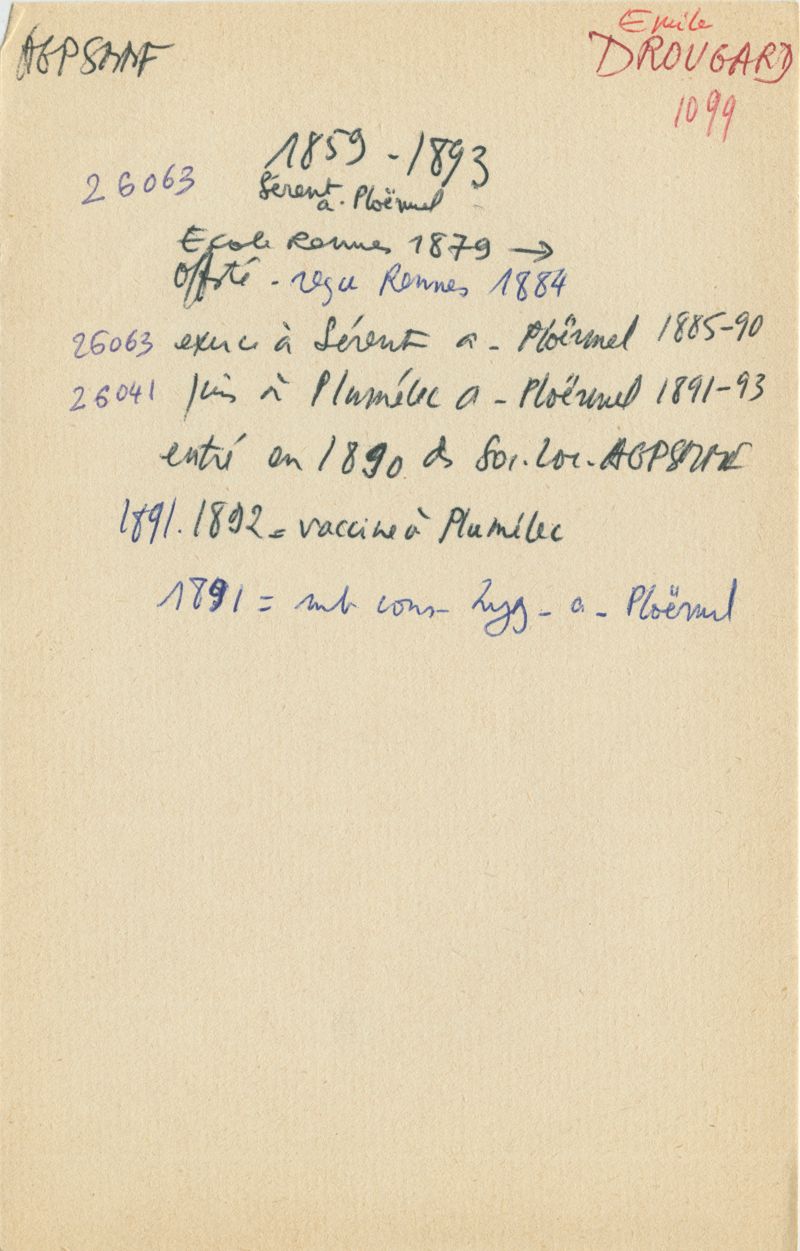 AGPSMAF
Emile
DROUGARD
1099
1859 - 1893
26063 Sérent
a. Ploërmel
Ecole Rennes 1879 →
Offté - reçu Rennes 1884
26063 exerce à Sérent a - Ploërmel 1885-90
26041 puis à Plumélec a - Ploërmel 1891-93
entré en 1890 ds Soc. Loc.
1891.1892 = vaccine à Plumélec
1891 = mb cons- hyg - a - Ploërmel